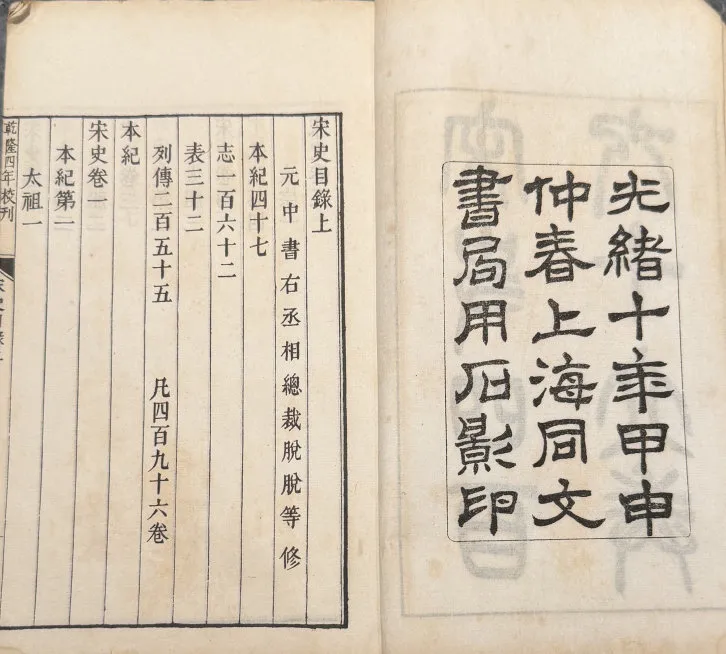 光緒十年甲申
仲春上海同文
書局用石影印
宋史目錄上
元中書右丞相總裁脫脫等 修
本紀四十七
志一百六十二
表三十二
列傳二百五十五 凡四百九十六卷
本紀
宋史卷一
本紀第一
太祖一
乾隆四年校刊
宋史目錄上